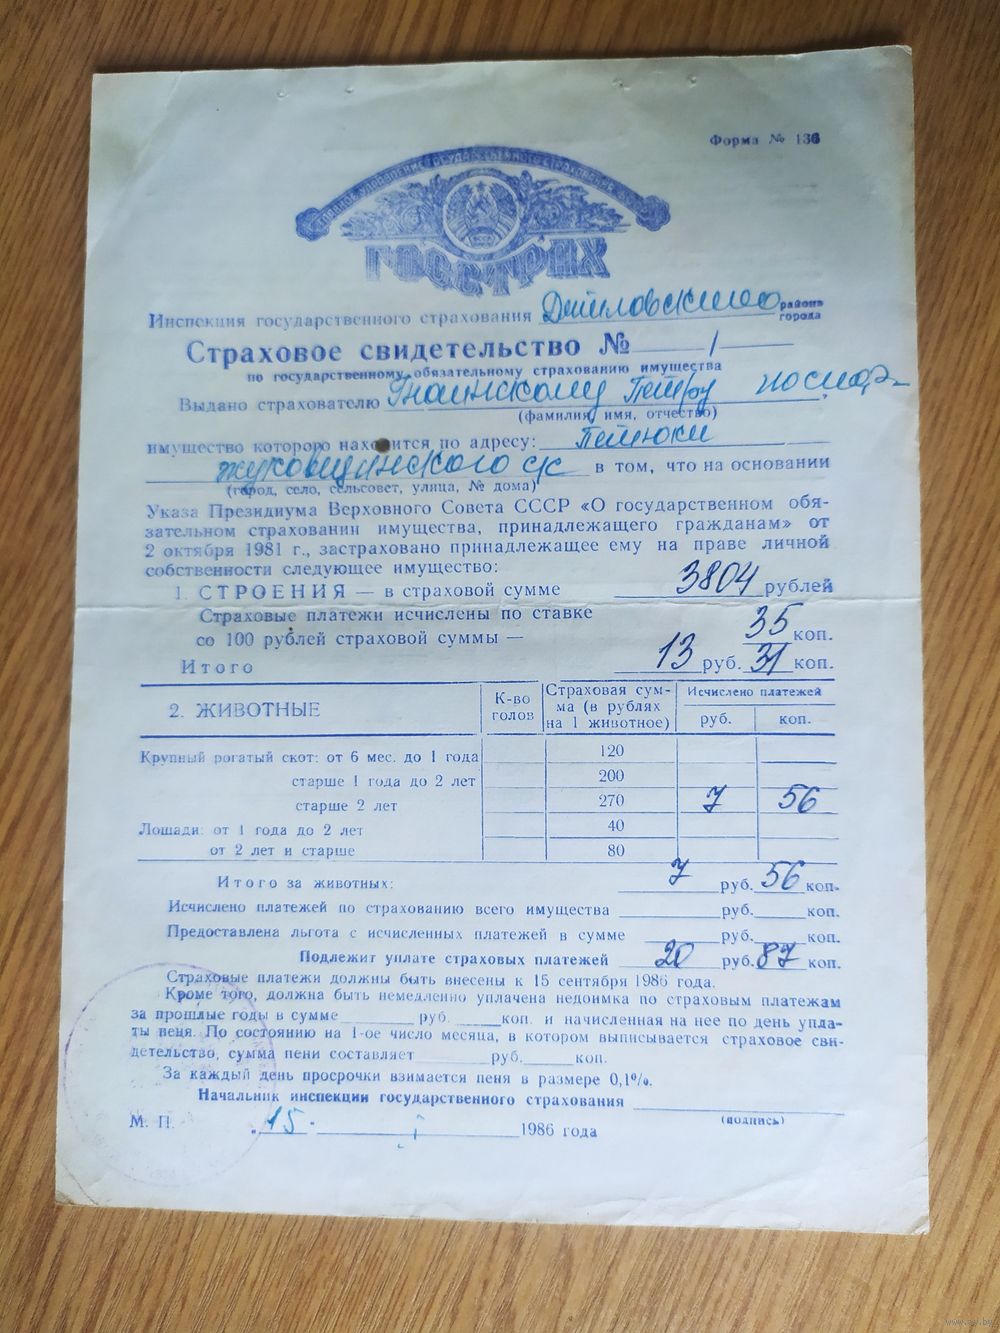 Форма № 136
ГЛАВНОЕ УПРАВЛЕНИЕ ГОСУДАРСТВЕННОГО СТРАХОВАНИЯ
ГОССТРАХ
Инспекция государственного страхования района
города
Страховое свидетельство № 1
по государственному обязательному страхованию имущества
Выдано страхователю Петру
(фамилия, имя, отчество)
имущество которого находится по адресу: Петюки
Жуковщинского с/с в том, что на основании
(город, село, сельсовет, улица, № дома)
Указа Президиума Верховного Совета СССР «О государственном обя-
зательном страховании имущества, принадлежащего гражданам» от
2 октября 1981 г., застраховано принадлежащее ему на праве личной
собственности следующее имущество:
1. СТРОЕНИЯ — в страховой сумме 3804 рублей
Страховые платежи исчислены по ставке
со 100 рублей страховой суммы — 35 коп.
Итого 13 руб. 31 коп.
2. ЖИВОТНЫЕ К-во голов Страховая сум-ма (в рублях на 1 животное) Исчислено платежей
руб. коп.
Крупный рогатый скот: от 6 мес. до 1 года 120
старше 1 года до 2 лет 200
старше 2 лет 270 7 56
Лошади: от 1 года до 2 лет 40
от 2 лет и старше 80
Итого за животных: 7 руб. 56 коп.
Исчислено платежей по страхованию всего имущества руб. коп.
Предоставлена льгота с исчисленных платежей в сумме руб. коп.
Подлежит уплате страховых платежей 20 руб. 87 коп.
Страховые платежи должны быть внесены к 15 сентября 1986 года.
Кроме того, должна быть немедленно уплачена недоимка по страховым платежам
за прошлые годы в сумме руб. коп. и начисленная на нее по день упла-
ты пеня. По состоянию на 1-ое число месяца, в котором выписывается страховое сви-
детельство, сумма пени составляет руб. коп.
За каждый день просрочки взимается пеня в размере 0,1%.
Начальник инспекции государственного страхования
(подпись)
М. П. 15. 1986 года
www.ay.by